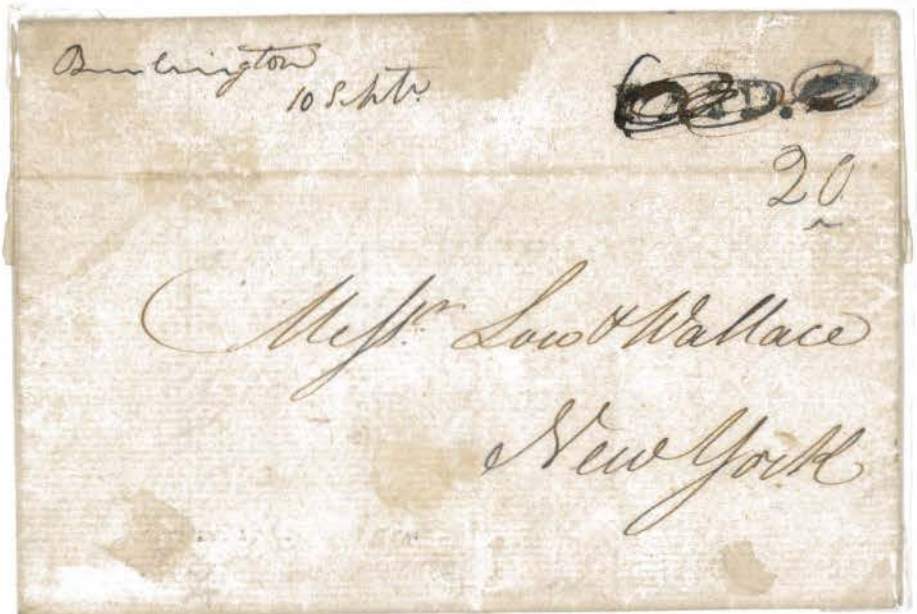 Burlington
10 Septr
20
Messrs Low & Wallace
New York